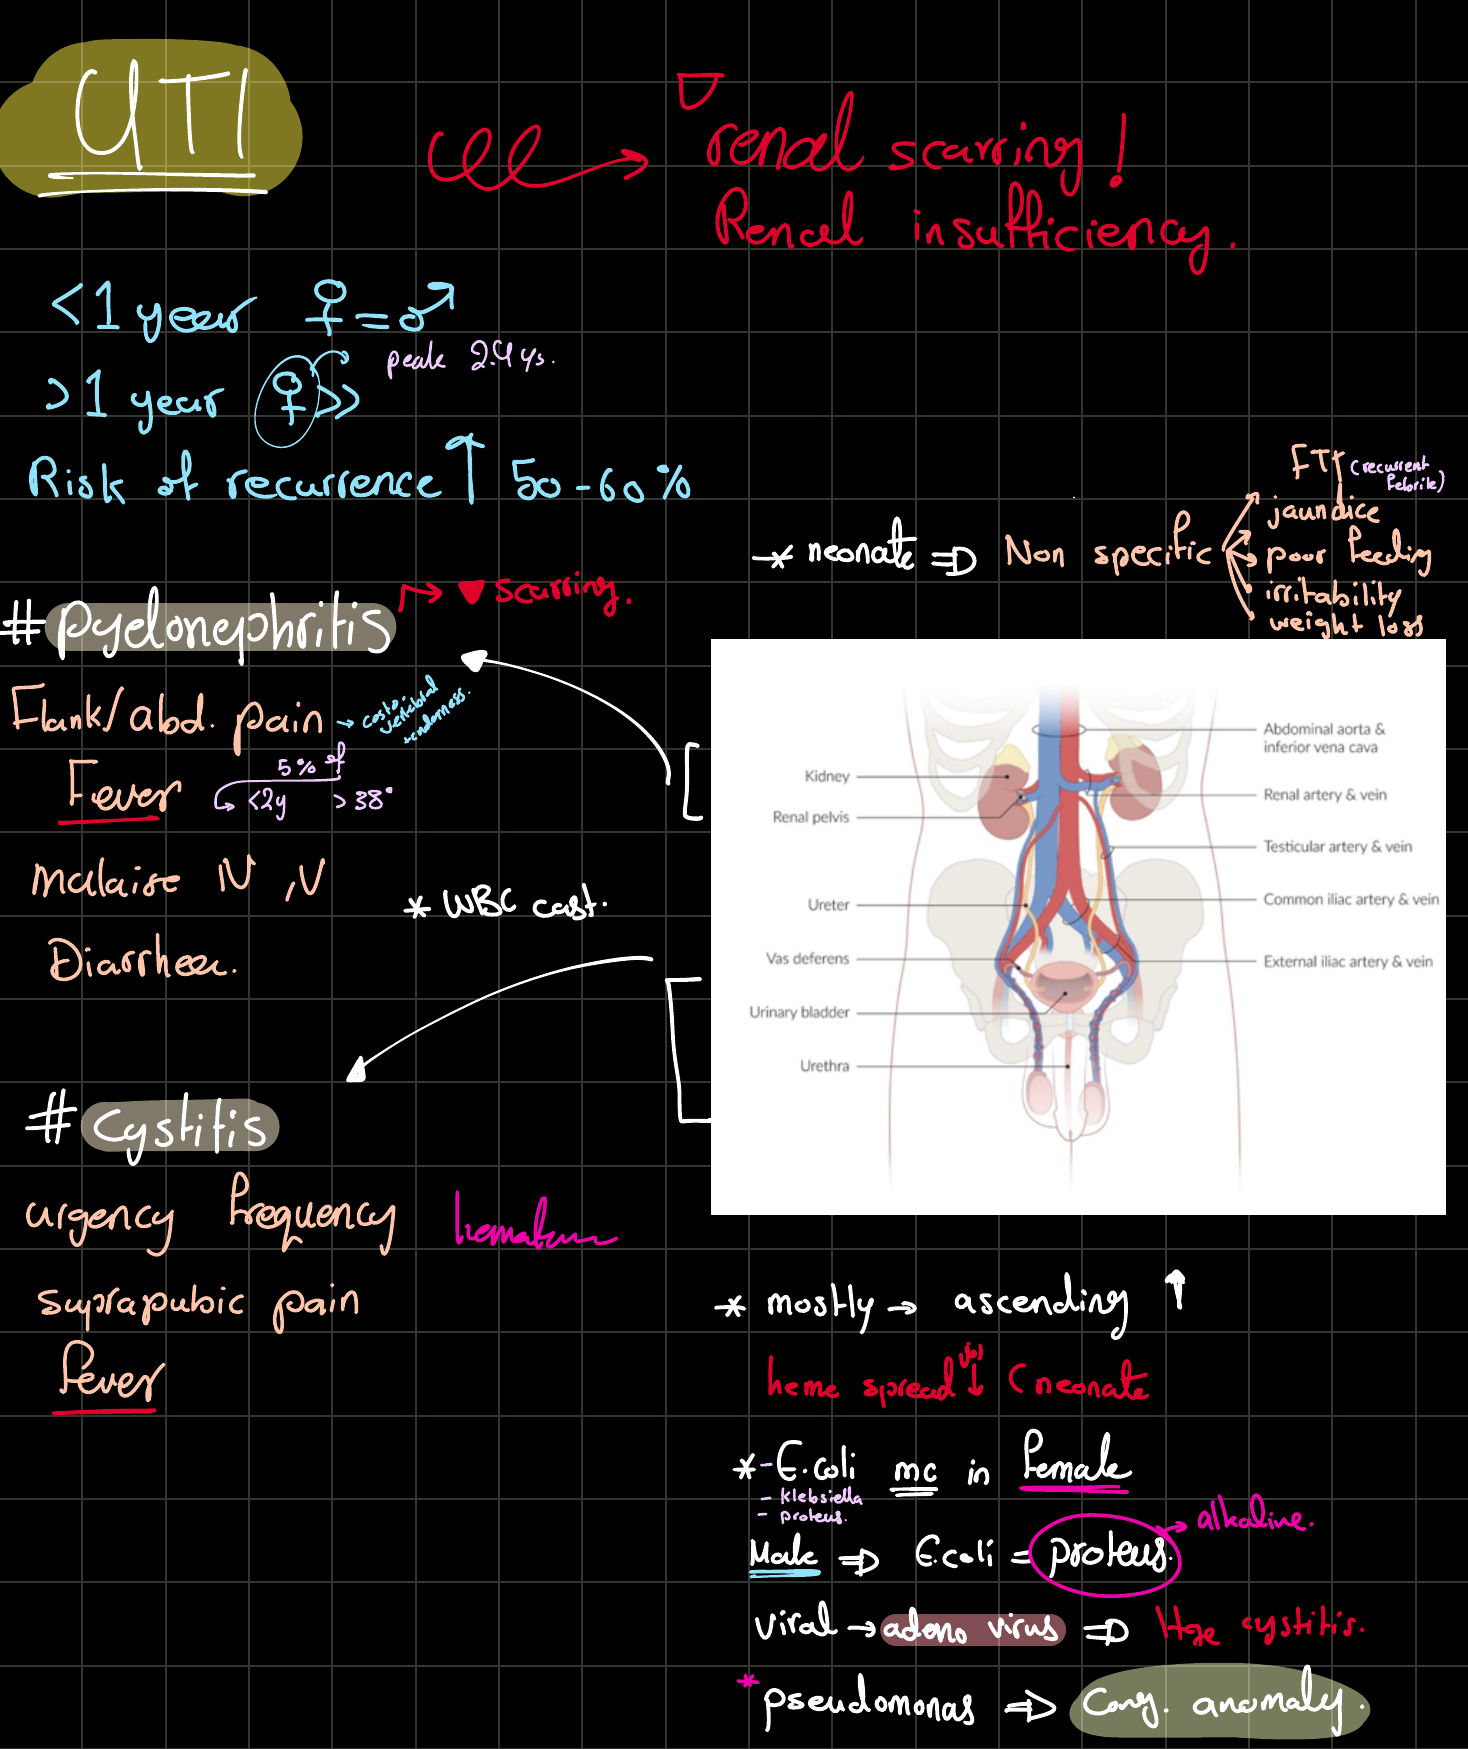 UTI
renal scarring!
Renal insufficiency.
<1 year ♀ = ♂
peak 2.4 ys.
>1 year ♀ >>
Risk of recurrence ↑ 50-60%
* neonate ⇒ Non specific
FTT (recurrent febrile)
jaundice
poor feeding
irritability
weight loss
# pyelonephritis → ▼ scarring.
Flank/abd. pain → costo-vertebral tenderness.
Fever
5% of
<2y >38°
malaise N, V
* WBC cast.
Diarrhea.
# Cystitis
urgency frequency hematuria
suprapubic pain
fever
Kidney
Renal pelvis
Ureter
Vas deferens
Urinary bladder
Urethra
Abdominal aorta &
inferior vena cava
Renal artery & vein
Testicular artery & vein
Common iliac artery & vein
External iliac artery & vein
* mostly → ascending ↑
heme spread ↓ (neonate
* - E.coli mc in female
- klebsiella
- proteus.
Male ⇒ E.coli = proteus. → alkaline.
viral → adeno virus ⇒ Hge cystitis.
* pseudomonas ⇒ Cong. anomaly.